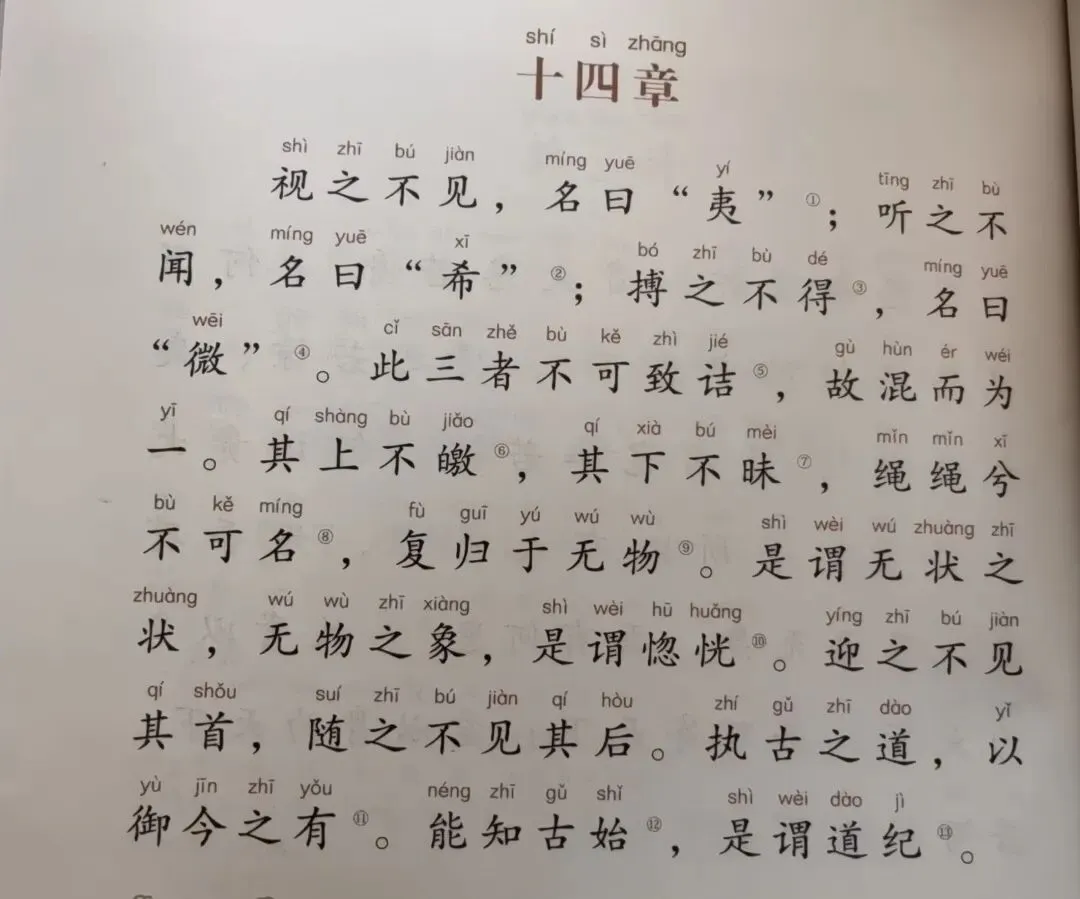 shí sì zhāng
十四章
shì zhī bú jiàn míng yuē yí tīng zhī bù
视之不见，名曰“夷”①；听之不
wén míng yuē xī bó zhī bù dé míng yuē
闻，名曰“希”②；搏之不得③，名曰
wēi cǐ sān zhě bù kě zhì jié gù hùn ér wéi
“微”④。此三者不可致诘⑤，故混而为
yī qí shàng bù jiǎo qí xià bú mèi mǐn mǐn xī
一。其上不皦⑥，其下不昧⑦，绳绳兮
bù kě míng fù guī yú wú wù shì wèi wú zhuàng zhī
不可名⑧，复归于无物⑨。是谓无状之
zhuàng wú wù zhī xiàng shì wèi hū huǎng yíng zhī bú jiàn
状，无物之象，是谓惚恍⑩。迎之不见
qí shǒu suí zhī bú jiàn qí hòu zhí gǔ zhī dào yǐ
其首，随之不见其后。执古之道，以
yù jīn zhī yǒu néng zhī gǔ shǐ shì wèi dào jì
御今之有⑪。能知古始⑫，是谓道纪⑬。